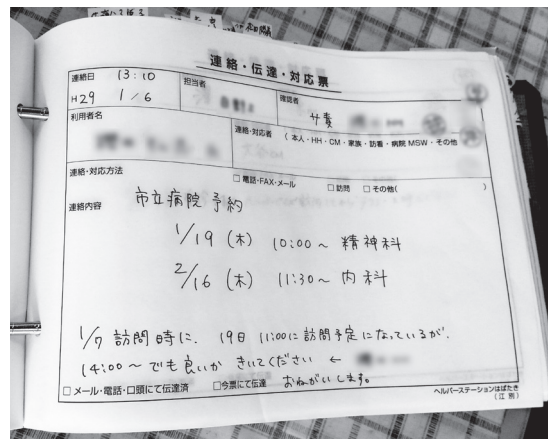 連絡・伝達・対応票
連絡日 13:10
H29 1/6
担当者
確認者
サ責
利用者名
連絡・対応者 (本人・HH・CM・家族・訪看・病院MSW・その他
連絡・対応方法
□電話・FAX・メール □訪問 □その他( )
連絡内容
市立病院予約
1/19 (木) 10:00〜 精神科
2/16 (木) 11:30〜 内科
1/7 訪問時に、19日 11:00に訪問予定になっているが、
14:00〜でも良いか きいてください ←
おねがいします。
□メール・電話・口頭にて伝達済 □今票にて伝達
ヘルパーステーションはばたき
(江別)